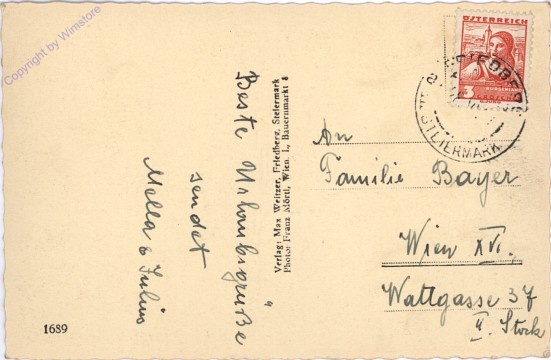 Copyright by Wimstore
Beste Urlaubsgrüße
sendet
Mella & Julius
Verlag: Max Weitzer, Friedberg, Steiermark
Photo: Franz Mörtl, Wien I., Bauernmarkt
1689
ÖSTERREICH
3
GROSCHEN
FRIEDBERG
STEIERMARK
An
Familie Bayer
Wien XVI.,
Wattgasse 37
II. Stock